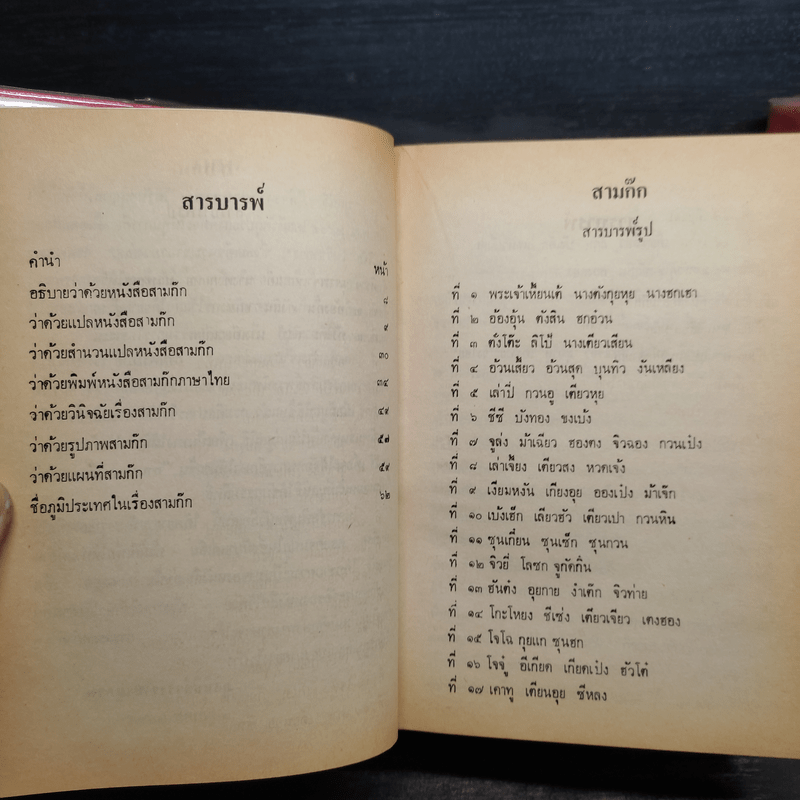 สารบารพ์
คำนำ
หน้า
อธิบายว่าด้วยหนังสือสามก๊ก ๘
ว่าด้วยแปลหนังสือสามก๊ก ๙
ว่าด้วยสำนวนแปลหนังสือสามก๊ก ๓๐
ว่าด้วยพิมพ์หนังสือสามก๊กภาษาไทย ๓๔
ว่าด้วยวินิจฉัยเรื่องสามก๊ก ๔๙
ว่าด้วยรูปภาพสามก๊ก ๕๗
ว่าด้วยแผนที่สามก๊ก ๕๙
ชื่อภูมิประเทศในเรื่องสามก๊ก ๖๒
สามก๊ก
สารบารพ์รูป
ที่ ๑ พระเจ้าเหี้ยนเต้ นางตังกุยหุย นางฮกเฮา
ที่ ๒ อ้องอุ้น ตังสิน ฮกอ๋วน
ที่ ๓ ตั๋งโต๊ะ ลิโป้ นางเตียวเสียน
ที่ ๔ อ้วนเสี้ยว อ้วนสุด บุนทิว งันเหลียง
ที่ ๕ เล่าปี่ กวนอู เตียวหุย
ที่ ๖ ชีซี บังทอง ขงเบ้ง
ที่ ๗ จูล่ง ม้าเฉียว ฮองตง จิวฉอง กวนเป๋ง
ที่ ๘ เล่าเจี้ยง เตียวสง หวดเจ้ง
ที่ ๙ เงียมหงัน เกียงอุย อองเป๋ง ม้าเจ๊ก
ที่ ๑๐ เบ้งเฮ็ก เลียวฮัว เตียวเปา กวนหิน
ที่ ๑๑ ซุนเกี๋ยน ซุนเซ็ก ซุนกวน
ที่ ๑๒ จิวยี่ โลซก จูกัดกิ๋น
ที่ ๑๓ ฮันต๋ง อุยกาย งำเต๊ก จิวท่าย
ที่ ๑๔ โกะโหยง ชีเซ่ง เตียวเจียว เตงฮอง
ที่ ๑๕ โจโฉ กุยแก ซุนฮก
ที่ ๑๖ โจจู๋ อีเกียด เกียดเป๋ง ฮัวโต๋
ที่ ๑๗ เคาทู เตียนอุย ซีหลง